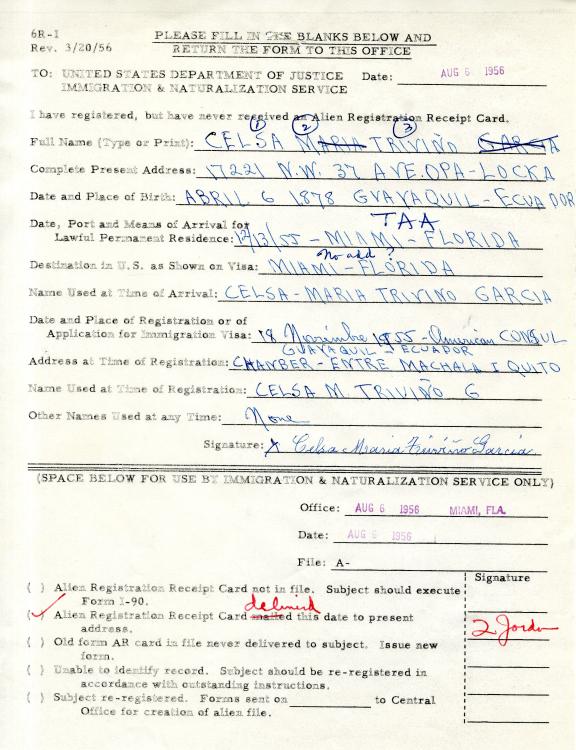 6R-1
Rev. 3/20/56
PLEASE FILL IN THE BLANKS BELOW AND
RETURN THE FORM TO THIS OFFICE
TO: UNITED STATES DEPARTMENT OF JUSTICE
IMMIGRATION & NATURALIZATION SERVICE
Date: AUG 6 1956
I have registered, but have never received an Alien Registration Receipt Card.
1 2 3
Full Name (Type or Print): CELSA MARIA TRIVIÑO GARCIA
Complete Present Address: 17221 N.W. 37 AVE. OPA-LOCKA
Date and Place of Birth: ABRIL 6 1878 GUAYAQUIL-ECUADOR
TAA
Date, Port and Means of Arrival for
Lawful Permanent Residence: 12/13/55 - MIAMI - FLORIDA
No add ?
Destination in U.S. as Shown on Visa: MIAMI-FLORIDA
Name Used at Time of Arrival: CELSA-MARIA TRIVIÑO GARCIA
Date and Place of Registration or of
Application for Immigration Visa: 18 Noviembre 1955-American CONSUL
GUAYAQUIL - ECUADOR
Address at Time of Registration: CHAMBER-ENTRE MACHALA I QUITO
Name Used at Time of Registration: CELSA M. TRIVIÑO G
Other Names Used at any Time: None
Signature: X Celsa Maria Triviño Garcia
(SPACE BELOW FOR USE BY IMMIGRATION & NATURALIZATION SERVICE ONLY)
Office: AUG 6 1956 MIAMI, FLA.
Date: AUG 6 1956
File: A-
Signature
( ) Alien Registration Receipt Card not in file. Subject should execute
Form I-90.
delivered
( ) Alien Registration Receipt Card mailed this date to present
address.
( ) Old form AR card in file never delivered to subject. Issue new
form.
( ) Unable to identify record. Subject should be re-registered in
accordance with outstanding instructions.
( ) Subject re-registered. Forms sent on to Central
Office for creation of alien file.